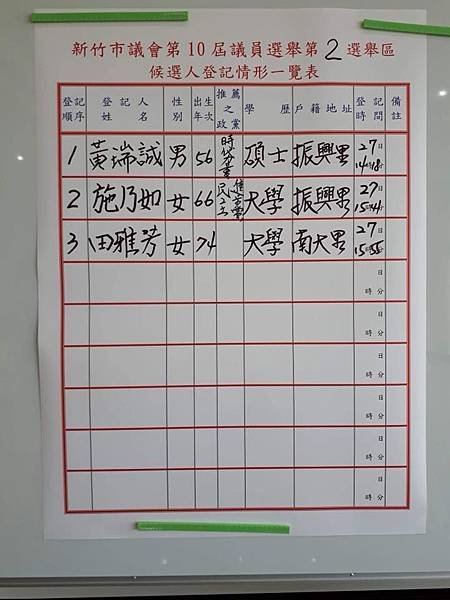 新竹市議會第10屆議員選舉第2選舉區
候選人登記情形一覽表
登記順序 登記人姓名 性別 出生年次 推薦之政黨 學歷 戶籍地址 登記時間 備註
1 黃瑞誠 男 56 時代力量 碩士 振興里 27日 14時 分
2 施乃如 女 66 民主進步黨 大學 振興里 27日 15時41分
3 田雅芳 女 74 大學 南大里 27日 15時55分
日
時 分
日
時 分
日
時 分
日
時 分
日
時 分
日
時 分